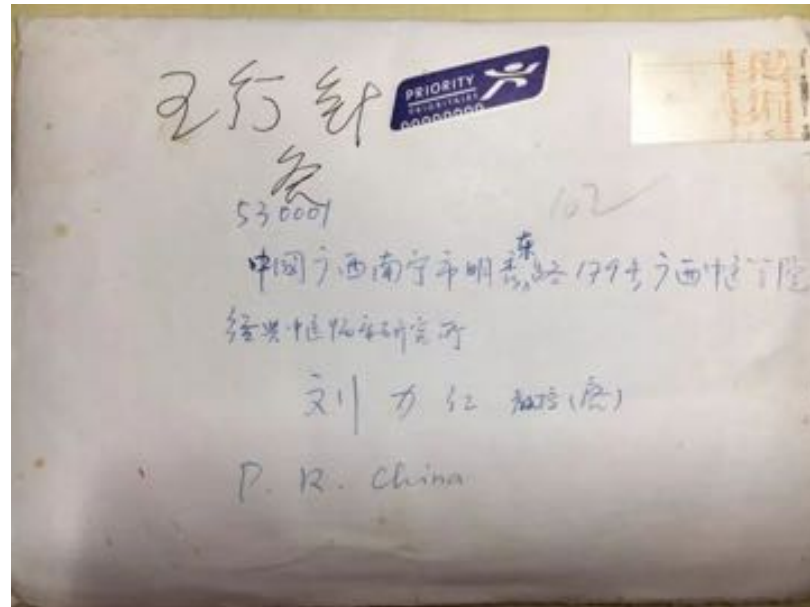 五行针
灸
PRIORITY
PRIORITAIRE
530001
102
中国广西南宁市明秀东路179号广西中医学院
经典中医临床研究所
刘力红 教授(启)
P. R. China